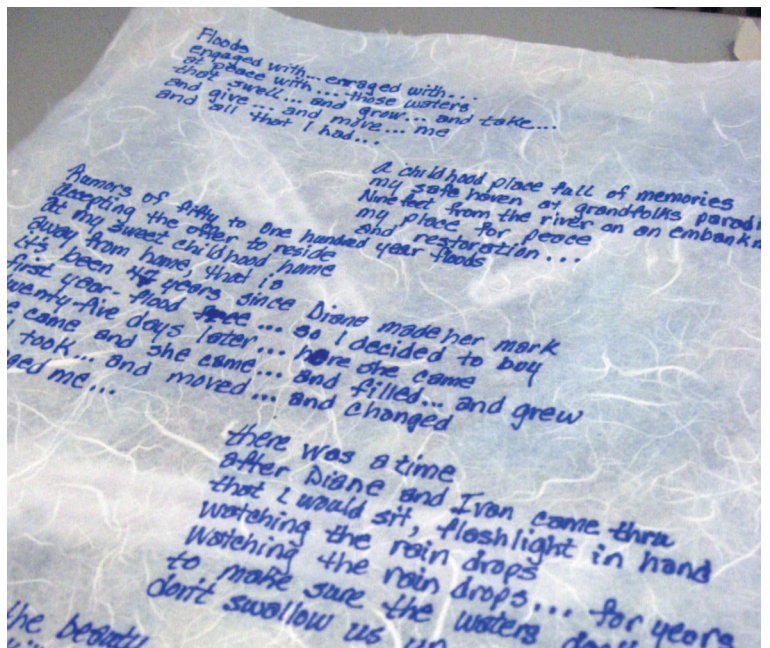 Floods
engaged with... enraged with...
at peace with... those waters
that swell... and grow... and take...
and give... and move... me
and all that I had...
A childhood place full of memories
my safe haven at grandfolks paradi
Nine feet from the river on an embankm
my place for peace
and restoration...
Rumors of fifty to one hundred year floods
Accepting the offer to reside
at my sweet childhood home
away from home, that is
it's been 47 years since Diane made her mark
first year- flood free... so I decided to buy
wenty-five days later... here she came
e came and she came... and filled... and grew
took... and moved... and changed
ged me...
there was a time
after Diane and Ivan came thru
that I would sit, flashlight in hand
watching the rain drops
watching the rain drops... for years
to make sure the waters don't
don't swallow us up
the beauty